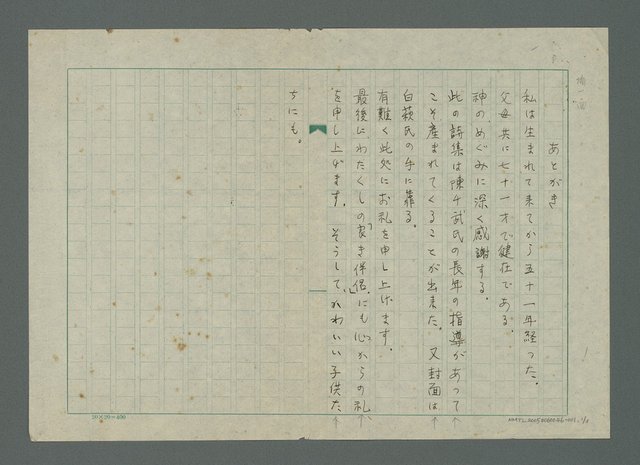 あとがき
私は生まれて来てから五十一年経った。
父母共に七十一才で健在である。
神のめぐみに深く感謝する。
此の詩集は陳千武氏の長年の指導があって
こそ産まれてくることが出来た。又封面は
白萩氏の手に靠る。
有難く此処にお礼を申し上げます。
最後にわたくしの「良き伴侶」にも心からの礼
を申し上げます。そうして、かわいい子供た
ちにも。
20×20=400